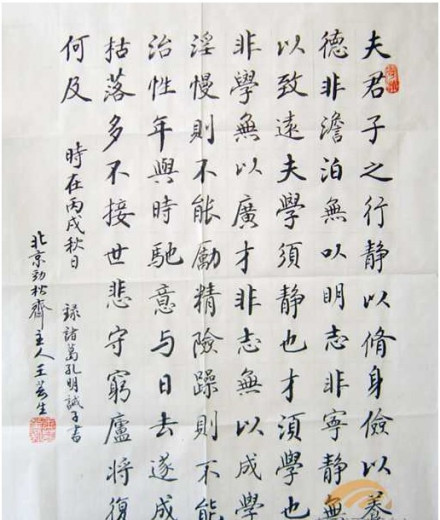 夫君子之行静以脩身儉以養
德非澹泊無以明志非寧静無
以致遠夫學須静也才須學也
非學無以廣才非志無以成學
淫慢則不能勵精險躁則不能
治性年與時馳意与日去遂成
枯落多不接世悲守窮廬将復
何及
時在丙戌秋日
録諸葛孔明誡子書
北京勁松齋主人王芸生